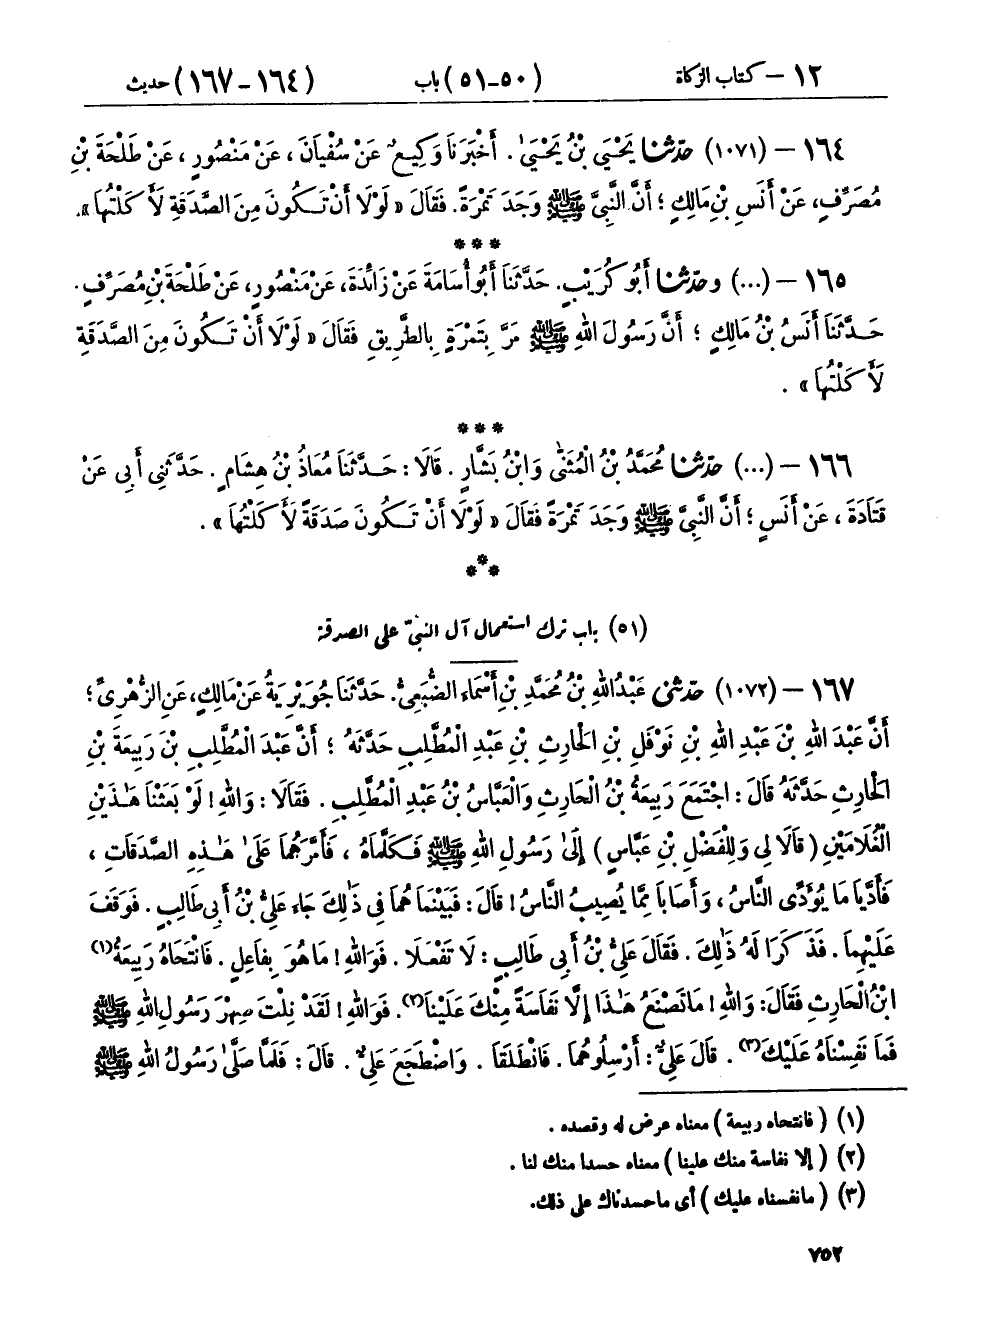 ١٢ – كتاب الزكاة (٥٠-٥١) باب (١٦٤-١٦٧) حديث
١٦٤ – (١٠٧١) حدّثنا يَحْيَى بْنُ يَحْيَىٰ . أَخْبَرَنَا وَكِيعٌ عَنْ سُفْيَانَ ، عَنْ مَنْصُورٍ ، عَنْ طَلْحَةَ بْنِ
مُصَرِّفٍ، عَنْ أَنَسِ بْنِ مَالِكٍ ؛ أَنَّ النَّبِيَّ ﷺ وَجَدَ تَمْرَةً. فَقَالَ « لَوْلَا أَنْ تَكُونَ مِنَ الصَّدَقَةِ لَأَكَلْتُهَا ».
***
١٦٥ – (...) وحدّثنا أَبُو كُرَيْبٍ. حَدَّثَنَا أَبُو أُسَامَةَ عَنْ زَائِدَةَ، عَنْ مَنْصُورٍ، عَنْ طَلْحَةَ بْنِ مُصَرِّفٍ.
حَدَّثَنَا أَنَسُ بْنُ مَالِكٍ ؛ أَنَّ رَسُولَ اللهِ ﷺ مَرَّ بِتَمْرَةٍ بِالطَّرِيقِ فَقَالَ « لَوْلَا أَنْ تَكُونَ مِنَ الصَّدَقَةِ
لَأَكَلْتُهَا » .
***
١٦٦ – (...) حدّثنا مُحَمَّدُ بْنُ الْمُثَنَّىٰ وَابْنُ بَشَّارٍ . قَالَا : حَدَّثَنَا مُعَاذُ بْنُ هِشَامٍ . حَدَّثَنِي أَبِي عَنْ
قَتَادَةَ ، عَنْ أَنَسٍ ؛ أَنَّ النَّبِيَّ ﷺ وَجَدَ تَمْرَةً فَقَالَ « لَوْلَا أَنْ تَكُونَ صَدَقَةً لَأَكَلْتُهَا » .
***
(٥١) باب ترك استعمال آل النبيّ على الصدقة
١٦٧ – (١٠٧٢) حدّثني عَبْدُ اللهِ بْنُ مُحَمَّدِ بْنِ أَسْمَاءَ الضُّبَعِيُّ. حَدَّثَنَا جُوَيْرِيَةُ عَنْ مَالِكٍ، عَنِ الزُّهْرِيِّ ؛
أَنَّ عَبْدَ اللهِ بْنَ عَبْدِ اللهِ بْنِ نَوْفَلِ بْنِ الْحَارِثِ بْنِ عَبْدِ الْمُطَّلِبِ حَدَّثَهُ ؛ أَنَّ عَبْدَ الْمُطَّلِبِ بْنَ رَبِيعَةَ بْنِ
الْحَارِثِ حَدَّثَهُ قَالَ : اجْتَمَعَ رَبِيعَةُ بْنُ الْحَارِثِ وَالْعَبَّاسُ بْنُ عَبْدِ الْمُطَّلِبِ . فَقَالَا : وَاللهِ ! لَوْ بَعَثْنَا هَـٰذَيْنِ
الْغُلَامَيْنِ ( قَالَا لِي وَلِلْفَضْلِ بْنِ عَبَّاسٍ ) إِلَىٰ رَسُولِ اللهِ ﷺ فَكَلَّمَاهُ ، فَأَمَّرَهُمَا عَلَىٰ هَـٰذِهِ الصَّدَقَاتِ ،
فَأَدَّيَا مَا يُؤَدِّى النَّاسُ ، وَأَصَابَا مِمَّا يُصِيبُ النَّاسُ ! قَالَ : فَبَيْنَمَا هُمَا فِي ذَٰلِكَ جَاءَ عَلِيُّ بْنُ أَبِي طَالِبٍ . فَوَقَفَ
عَلَيْهِمَا . فَذَكَرَا لَهُ ذَٰلِكَ . فَقَالَ عَلِيُّ بْنُ أَبِي طَالِبٍ : لَا تَفْعَلَا . فَوَاللهِ ! مَا هُوَ بِفَاعِلٍ . فَانْتَحَاهُ رَبِيعَةُ(١)
ابْنُ الْحَارِثِ فَقَالَ: وَاللهِ ! مَا تَصْنَعُ هَـٰذَا إِلَّا نَفَاسَةً مِنْكَ عَلَيْنَا(٢). فَوَاللهِ ! لَقَدْ نِلْتَ صِهْرَ رَسُولِ اللهِ ﷺ
فَمَا نَفِسْنَاهُ عَلَيْكَ(٣) . قَالَ عَلِيٌّ : أَرْسِلُوهُمَا . فَانْطَلَقَا . وَاضْطَجَعَ عَلِيٌّ . قَالَ : فَلَمَّا صَلَّىٰ رَسُولُ اللهِ ﷺ
(١) ( فانتحاه ربيعة ) معناه عرض له وقصده .
(٢) ( إلا نفاسة منك علينا ) معناه حسدا منك لنا .
(٣) ( ما نفسناه عليك ) أى ما حسدناك على ذلك.
٧٥٢